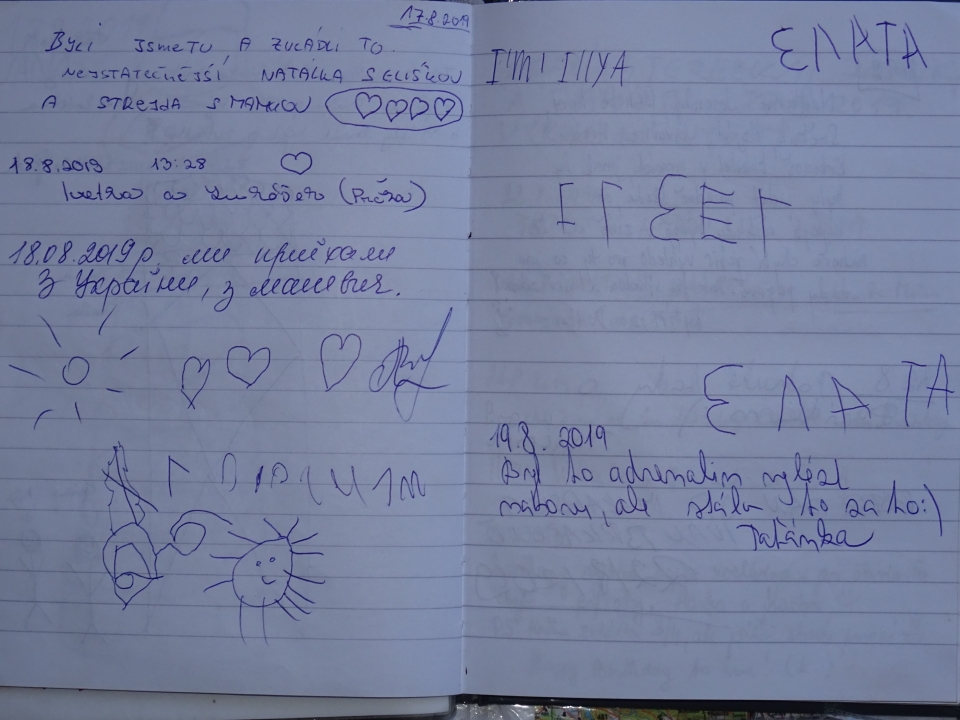 17.8.2019
BYLI JSME TU A ZVLÁDLI TO.
NEJSTATEČNĚJŠÍ NATÁLKA S ELIŠKOU
A STREJDA S MAMKOU
18.8.2019 13:28
(Praha)
18.08.2019р. ми приїхали
З України, з
ЕЛАТА
I'M ILLYA
ЕЛАТА
19.8. 2019
Byl to adrenalin vylézt
nahoru, ale stálo to za to:)
Taťánka